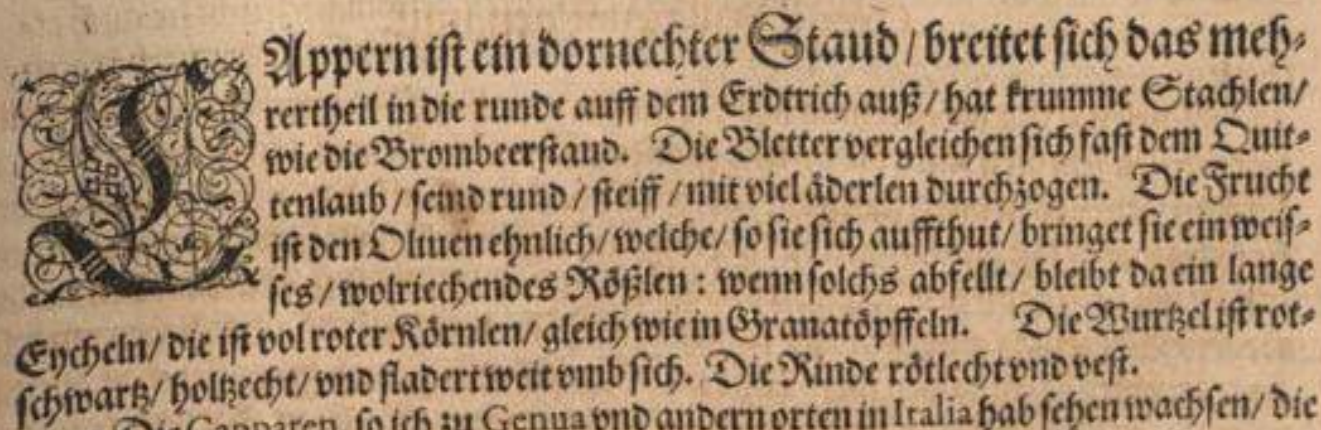 CAppern ist ein dornechter Staud / breitet sich das meh-
rertheil in die runde auff dem Erdtrich auß / hat krumme Stachlen/
wie die Brombeerstaud. Die Bletter vergleichen sich fast dem Quit-
tenlaub / seind rund / steiff / mit viel äderlen durchzogen. Die Frucht
ist den Oliuen ehnlich/ welche/ so sie sich auffthut/ bringet sie ein weis-
ses / wolriechendes Rößlen : wenn solchs abfellt / bleibt da ein lange
Eycheln/ die ist vol roter Körnlen/ gleich wie in Granatöpffeln. Die Wurtzel ist rot-
schwartz/ holtzecht/ vnd fladert weit vmb sich. Die Rinde rötlecht vnd vest.
Die Capparen, so ich zu Genua vnd andern orten in Italia hab sehen wachsen/ die